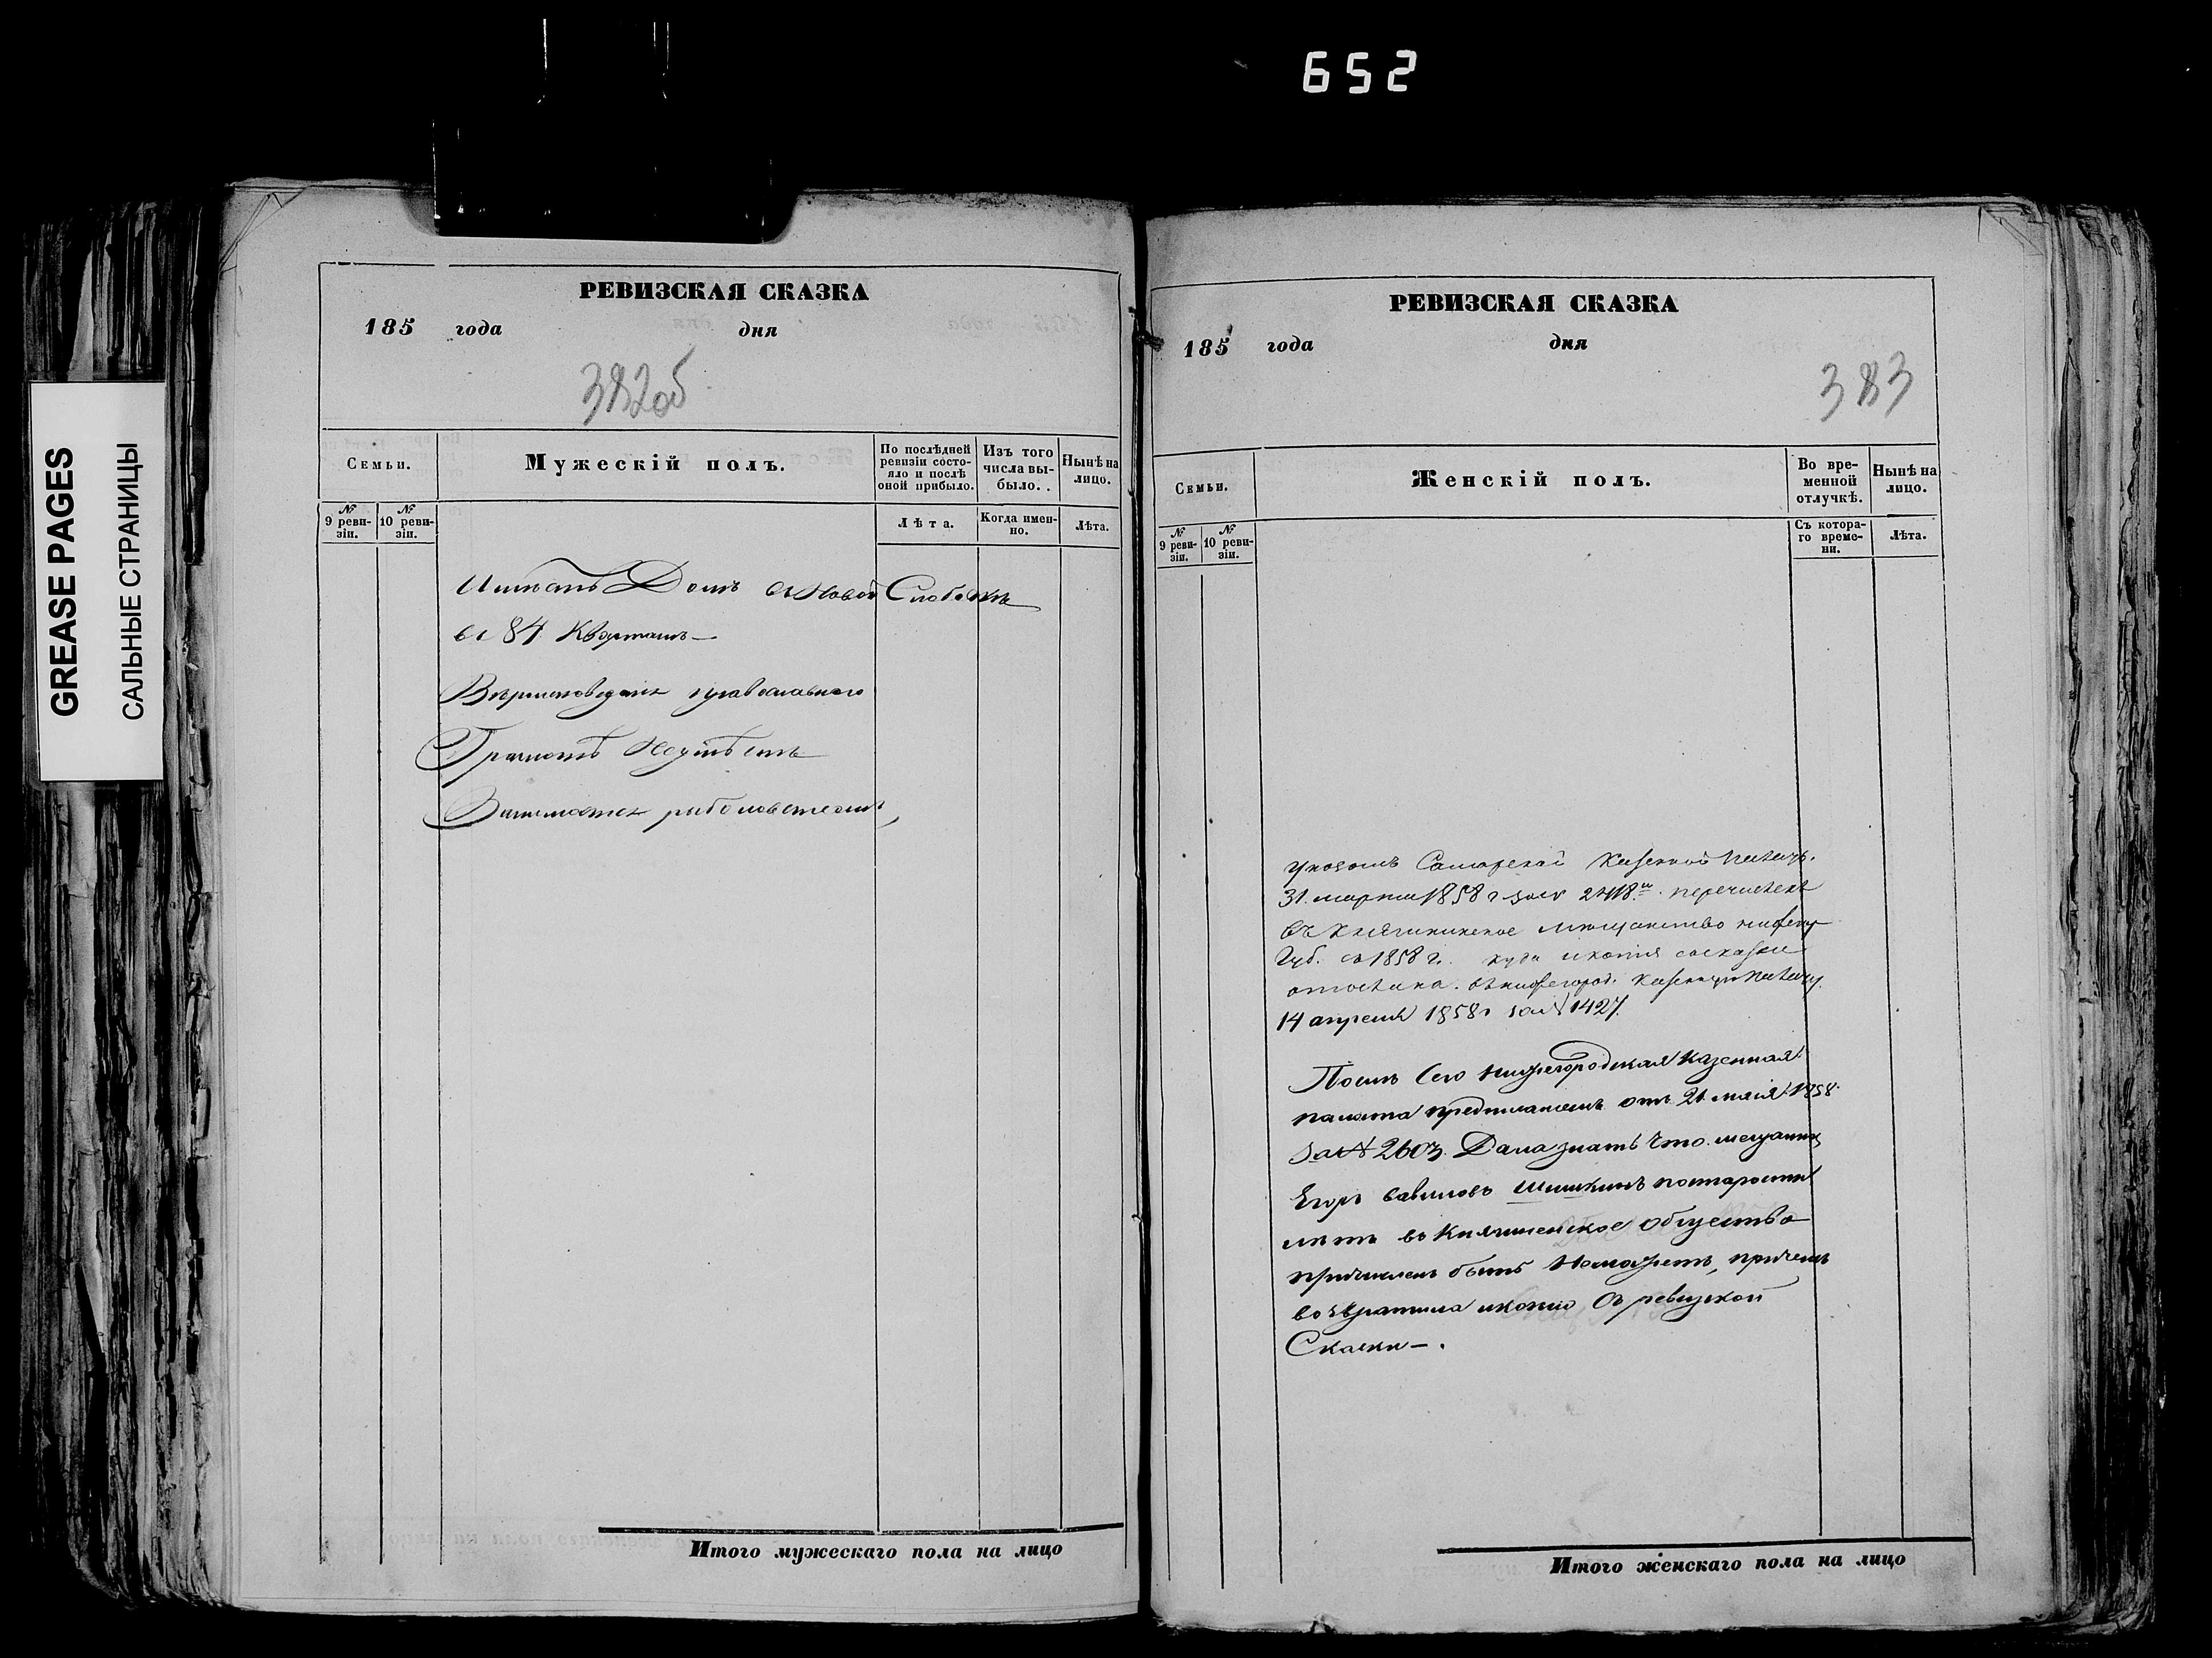 652
GREASE PAGES
САЛЬНЫЕ СТРАНИЦЫ
РЕВИЗСКАЯ СКАЗКА
185 года дня
382об
Семьи.
Мужескій полъ.
По послѣдней ревизіи состояло и послѣ оной прибыло.
Изъ того числа выбыло..
Нынѣ на лицо.
№ 9 ревизіи.
№ 10 ревизіи.
Лѣта.
Когда именно.
Лѣта.
Имѣетъ Домъ въ Новой Слободкѣ
въ 84 Кварталѣ —
Вѣроисповеданія православнаго
Грамотѣ Неумѣетъ
Занимается рыболовствомъ,
Итого мужескаго пола на лицо
РЕВИЗСКАЯ СКАЗКА
185 года дня
383
Семьи.
Женскій полъ.
Во временной отлучкѣ.
Нынѣ на лицо.
№ 9 ревизіи.
№ 10 ревизіи.
Съ котораго времени.
Лѣта.
Указомъ Самарской Казенной Палаты.
31. марта 1858 г за № перечисленъ
въ Княгининское мещанство нижегор
Губ. съ 1858 г. куда и копія съ сказки
отослана. въ нижегород. Казенную Палату
14 апреля 1858 г за № 1427.
Посемъ Сего Нижегородская Казенная
палата предписаніемъ отъ 21 маія 1858
за № 2603. Дала знать Что мещанинъ
Егоръ Вавиловъ Шишкинъ по старости
лѣтъ въ Княгининское общество
причисленъ быть Неможетъ, причемъ
возвратила и копію Съ ревизской
Сказки —.
Итого женскаго пола на лицо